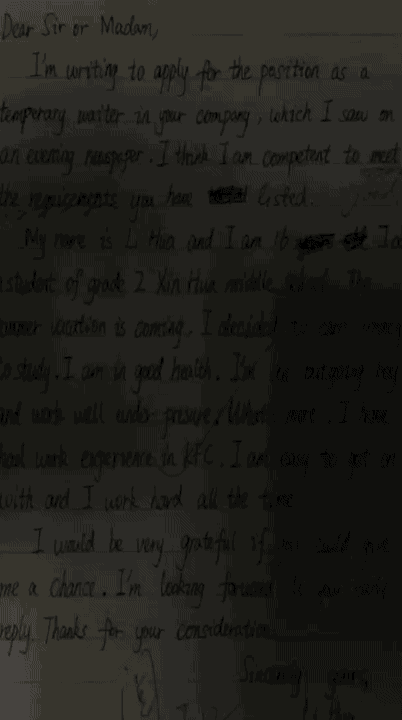 Dear Sir or Madam,
I'm writing to apply for the position as a
temporary waiter in your company, which I saw on
an evening newspaper. I think I am competent to meet
the requirements you have listed.
My name is Li Hua and I am 16 I a
student of grade 2 Xin Hua middle school. The
summer vacation is coming. I decided to earn money
to study. I am in good health. I'm an outgoing boy
and work well under presure. What more, I have
had work experience in KFC. I am easy to get on
with and I work hard all the time
I would be very grateful if you could give
me a chance. I'm looking forward to your early
reply. Thanks for your consideration.
Sincerely yours,
Li Hua